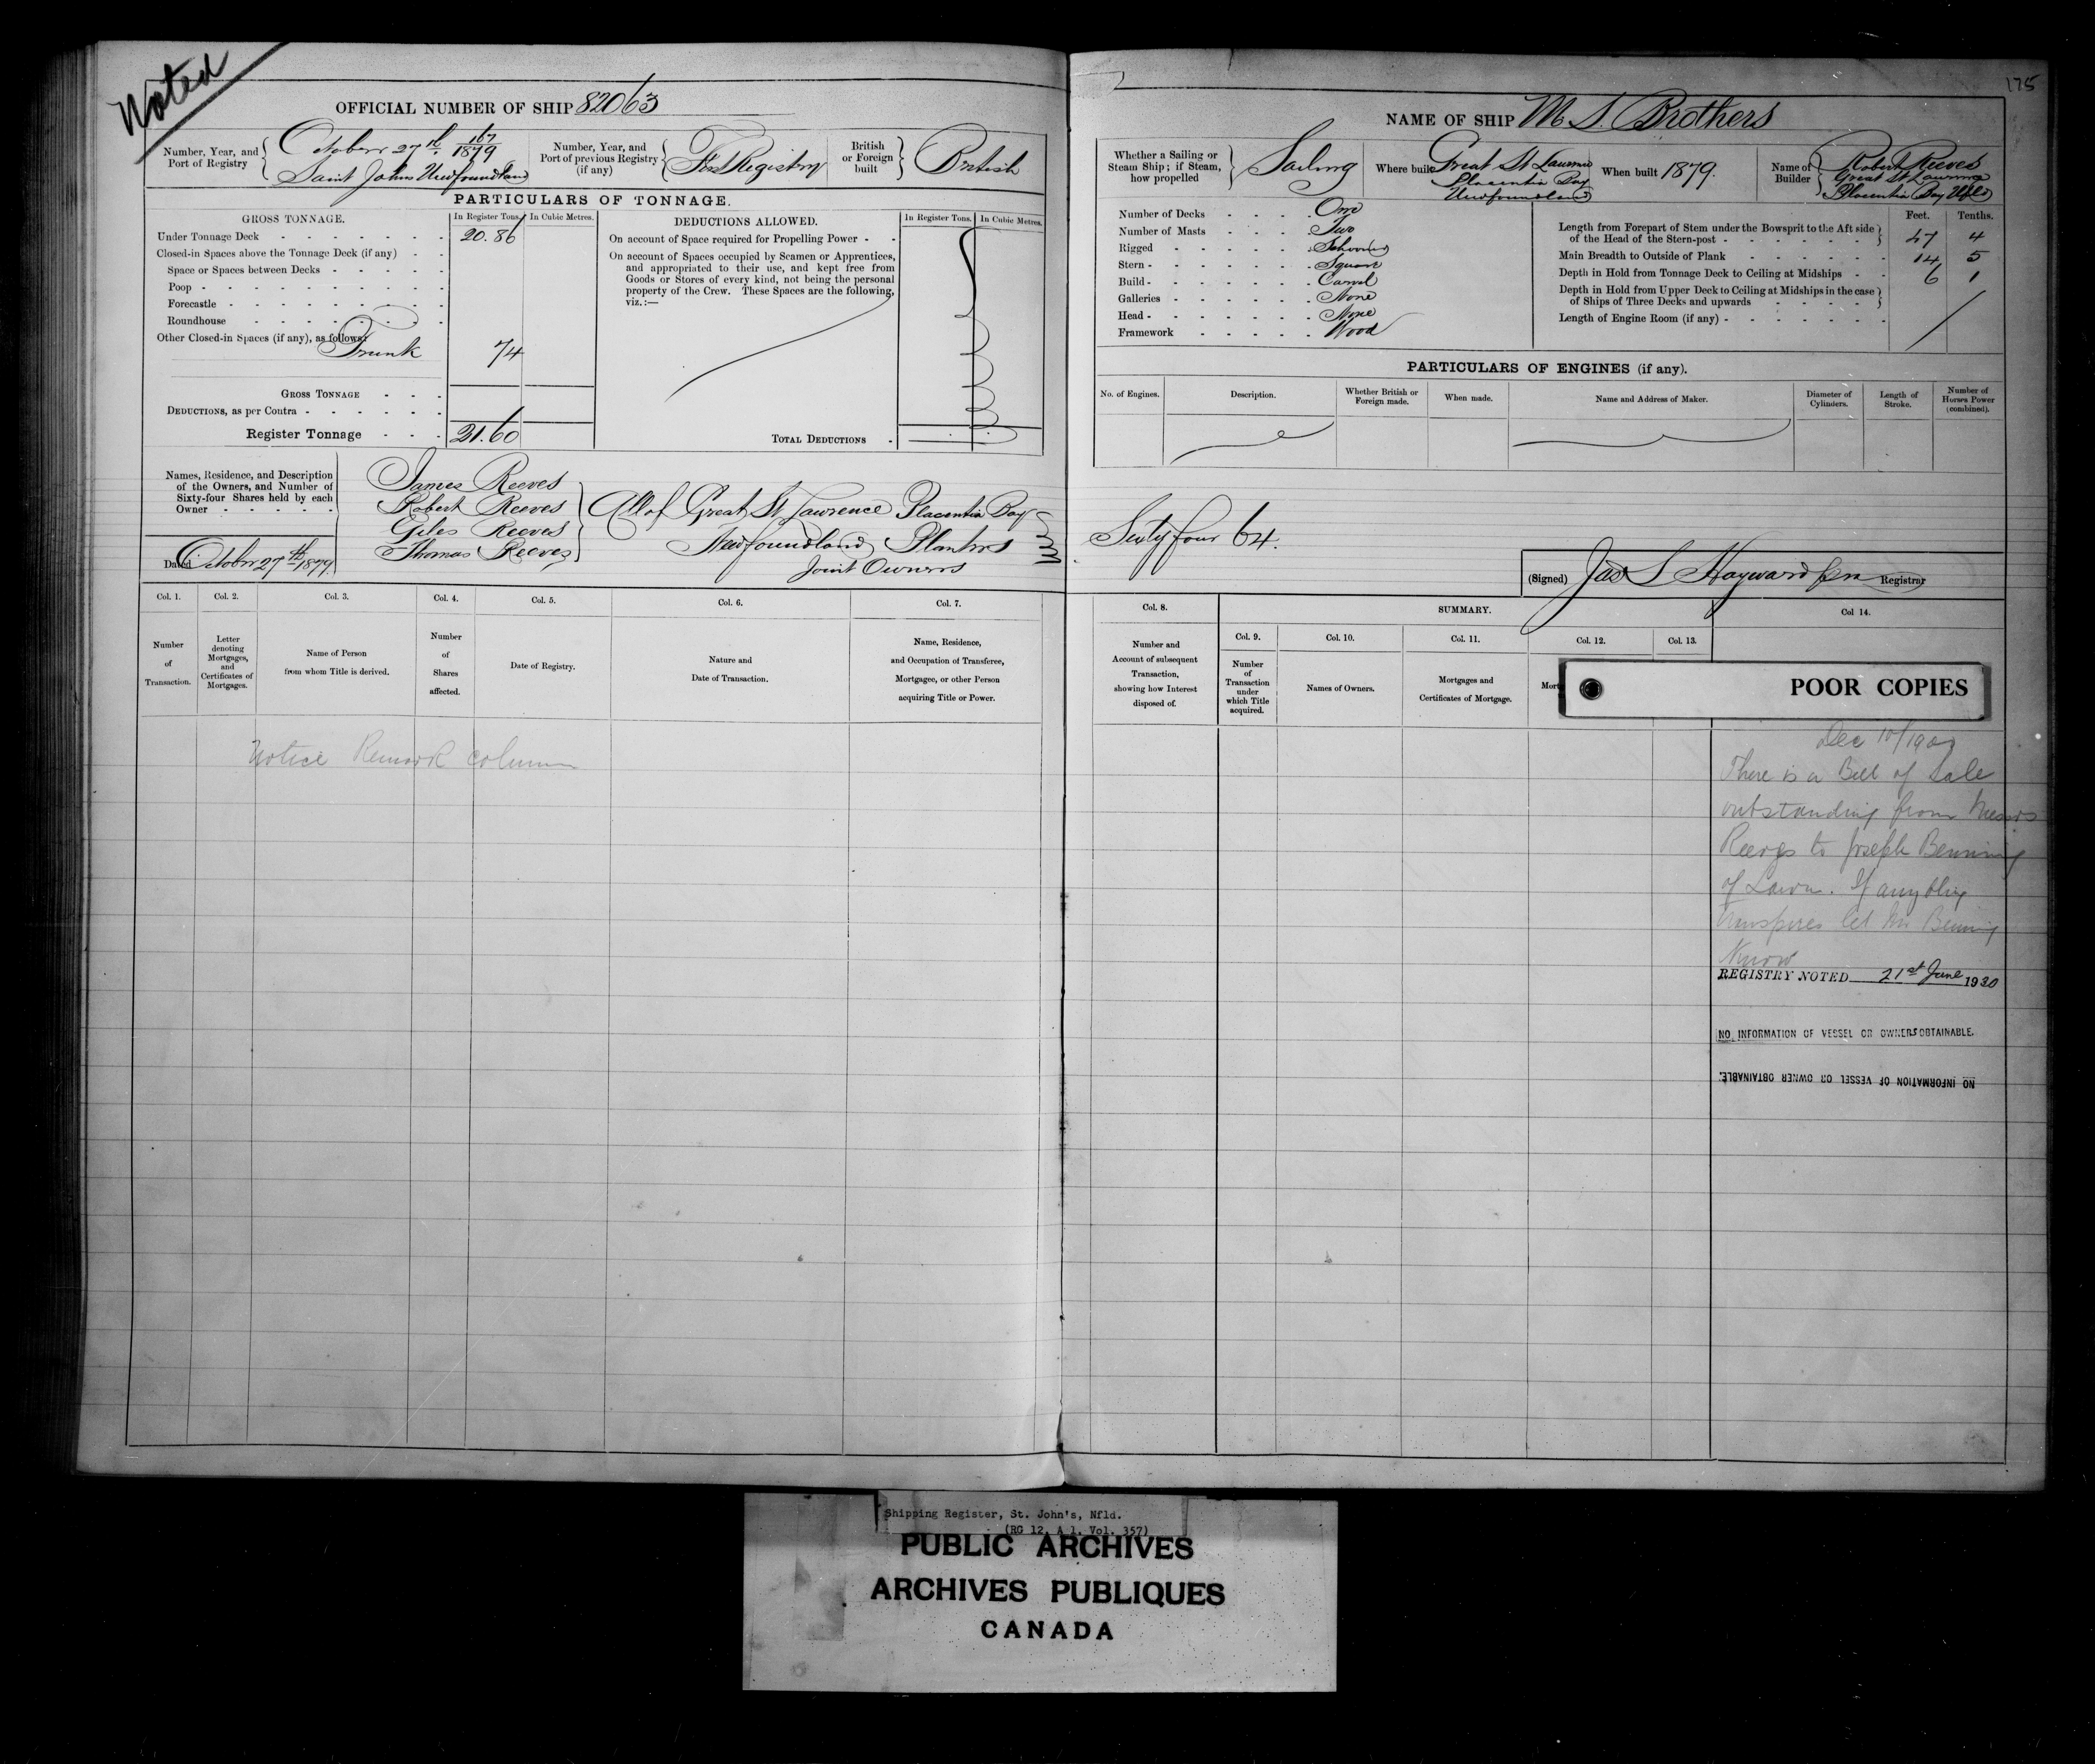 Noted
OFFICIAL NUMBER OF SHIP 82063
Number, Year, and Port of Registry
October 27th 167/1879
Saint Johns Newfoundland
Number, Year, and Port of previous Registry (if any)
First Registry
British or Foreign built
British
PARTICULARS OF TONNAGE.
GROSS TONNAGE. In Register Tons. In Cubic Metres.
Under Tonnage Deck 20.86
Closed-in Spaces above the Tonnage Deck (if any)
Space or Spaces between Decks
Poop
Forecastle
Roundhouse
Other Closed-in Spaces (if any), as follows
Trunk 74
GROSS TONNAGE
DEDUCTIONS, as per Contra
Register Tonnage 21.60
DEDUCTIONS ALLOWED. In Register Tons. In Cubic Metres.
On account of Space required for Propelling Power
On account of Spaces occupied by Seamen or Apprentices,
and appropriated to their use, and kept free from
Goods or Stores of every kind, not being the personal
property of the Crew. These Spaces are the following,
viz.:—
TOTAL DEDUCTIONS
Names, Residence, and Description
of the Owners, and Number of
Sixty-four Shares held by each
Owner
Dated October 27th 1879.
James Reeves
Robert Reeves
Giles Reeves
Thomas Reeves
All of Great St Lawrence Placentia Bay
Newfoundland Planters
Joint Owners
Col. 1. Col. 2. Col. 3. Col. 4. Col. 5. Col. 6. Col. 7.
Number of Transaction.
Letter denoting Mortgages, and Certificates of Mortgages.
Name of Person from whom Title is derived.
Number of Shares affected.
Date of Registry.
Nature and Date of Transaction.
Name, Residence, and Occupation of Transferee, Mortgagee, or other Person acquiring Title or Power.
Notice Remark column
175
NAME OF SHIP M S. Brothers
Whether a Sailing or Steam Ship; if Steam, how propelled
Sailing
Where built
Great St Lawrence
Placentia Bay
Newfoundland
When built 1879.
Name of Builder
Robert Reeves
Great St Lawrence
Placentia Bay Nfld
Number of Decks One
Number of Masts Two
Rigged Schooner
Stern Square
Build Carvel
Galleries None
Head None
Framework Wood
Feet. Tenths.
Length from Forepart of Stem under the Bowsprit to the Aft side
of the Head of the Stern-post 47 4
Main Breadth to Outside of Plank 14 5
Depth in Hold from Tonnage Deck to Ceiling at Midships 6 1
Depth in Hold from Upper Deck to Ceiling at Midships in the case
of Ships of Three Decks and upwards
Length of Engine Room (if any)
PARTICULARS OF ENGINES (if any).
No. of Engines. Description. Whether British or Foreign made. When made. Name and Address of Maker. Diameter of Cylinders. Length of Stroke. Number of Horses Power (combined).
Sixty four 64.
(Signed) Jas S Hayward Registrar
Col. 8. SUMMARY. Col 14.
Col. 9. Col. 10. Col. 11. Col. 12. Col. 13.
Number and Account of subsequent Transaction, showing how Interest disposed of.
Number of Transaction under which Title acquired.
Names of Owners.
Mortgages and Certificates of Mortgage.
Mort
POOR COPIES
Dec 10/190
There is a Bill of Sale
outstanding from Messrs
Reeves to Joseph Benning
of Lawn. If anything
transpires let Mr Benning
Know
REGISTRY NOTED 21st June 1930
NO INFORMATION OF VESSEL OR OWNERS OBTAINABLE.
NO INFORMATION OF VESSEL OR OWNER OBTAINABLE.
Shipping Register, St. John's, Nfld.
(RG 12, A 1, Vol. 357)
PUBLIC ARCHIVES
ARCHIVES PUBLIQUES
CANADA